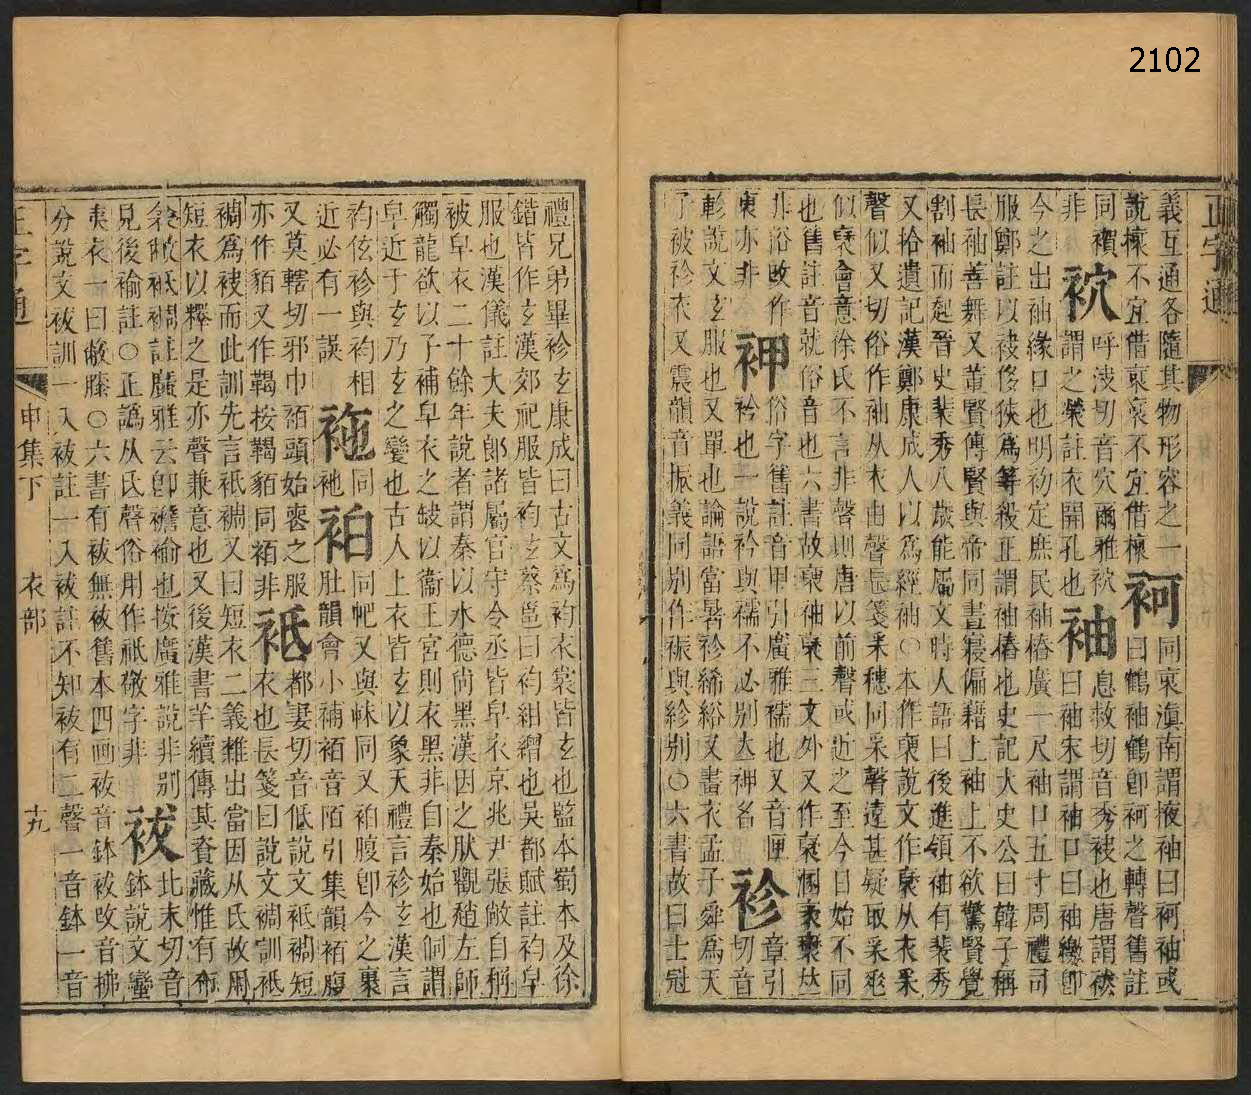 2102
正字通
義互通各隨其物形容之一 袔 同褱滇南謂掖袖曰袔袖或
說櫰不宜借褱褱不宜借櫰 曰鶴袖鶴卽袔之轉聲舊註
同襀 袕 呼決切音穴爾雅袕 袖 息救切音秀袂也唐謂袂
非 謂之褮註衣開孔也 曰袖宋謂袖口曰袖繳卽
今之出袖緣口也明初定庶民袖樁廣一尺袖口五寸周禮司
服鄭註以袂侈狹爲等殺正謂袖樁也史記大史公曰韓子稱
長袖善舞又董賢傳賢與帝同晝寢偏藉上袖上不欲驚賢覺
割袖而起晉史裴秀八歲能屬文時人語曰後進領袖有裴秀
又拾遺記漢鄭康成人以爲經袖○本作褎說文作褎从衣采
聲似又切俗作袖从衣由聲長箋采穗同采聲遠甚疑取采爪
似褎會意徐氏不言非聲則唐以前聲或近之至今日始不同
也舊註音就俗音也六書故褎袖褎三文外又作
非俗改作 神 俗字舊註音甲引廣雅襦也又音匣 袗 章引
褱亦非 衿也一說衿與襦不必別立神名 切音
軫說文玄服也又單也論語當暑袗絺綌又畫衣孟子舜爲天
子被袗衣又震韻音振義同別作裖與紾別○六書故曰士冠
禮兄弟畢袗玄康成曰古文爲袀衣裳皆玄也監本蜀本及徐
鍇皆作玄漢郊祀服皆袀玄蔡邕曰袀紺繒也吳都賦註袀皁
服也漢儀註大夫郎諸屬官守令丞皆皁衣京兆尹張敞自稱
被皁衣二十餘年說者謂秦以水德尙黑漢因之肰觀趙左師
觸龍欲以子補皁衣之缺以衞王宮則衣黑非自秦始也侗謂
皁近于玄乃玄之變也古人上衣皆玄以象天禮言袗玄漢言
袀伭袗與袀相 袘 同 袙 同帊又與帓同又袙腹卽今之裹
近必有一誤 衪 肚韻會小補袹音陌引集韻袹腹
又莫轄切邪巾袹頭始喪之服 袛 都妻切音低說文袛裯短
亦作貊又作鞨按鞨貊同袹非 衣也長箋曰說文裯訓袛
裯爲袂而此訓先言袛裯又曰短衣二義雜出當因从氏故周
短衣以釋之是亦聲兼意也又後漢書羊續傳其資藏惟有布
衾敝袛裯註廣雅云卽襜褕也按廣雅說非別 袚 北末切音
見後褕註○正譌从氏聲俗用作祇敬字非 鉢說文蠻
夷衣一曰敝膝○六書有袚無袯舊本四画袚音鉢袚改音拂
分說文袚訓一入袚註一入袚註不知袚有二聲一音鉢一音
正字通
申集下
衣部
十九